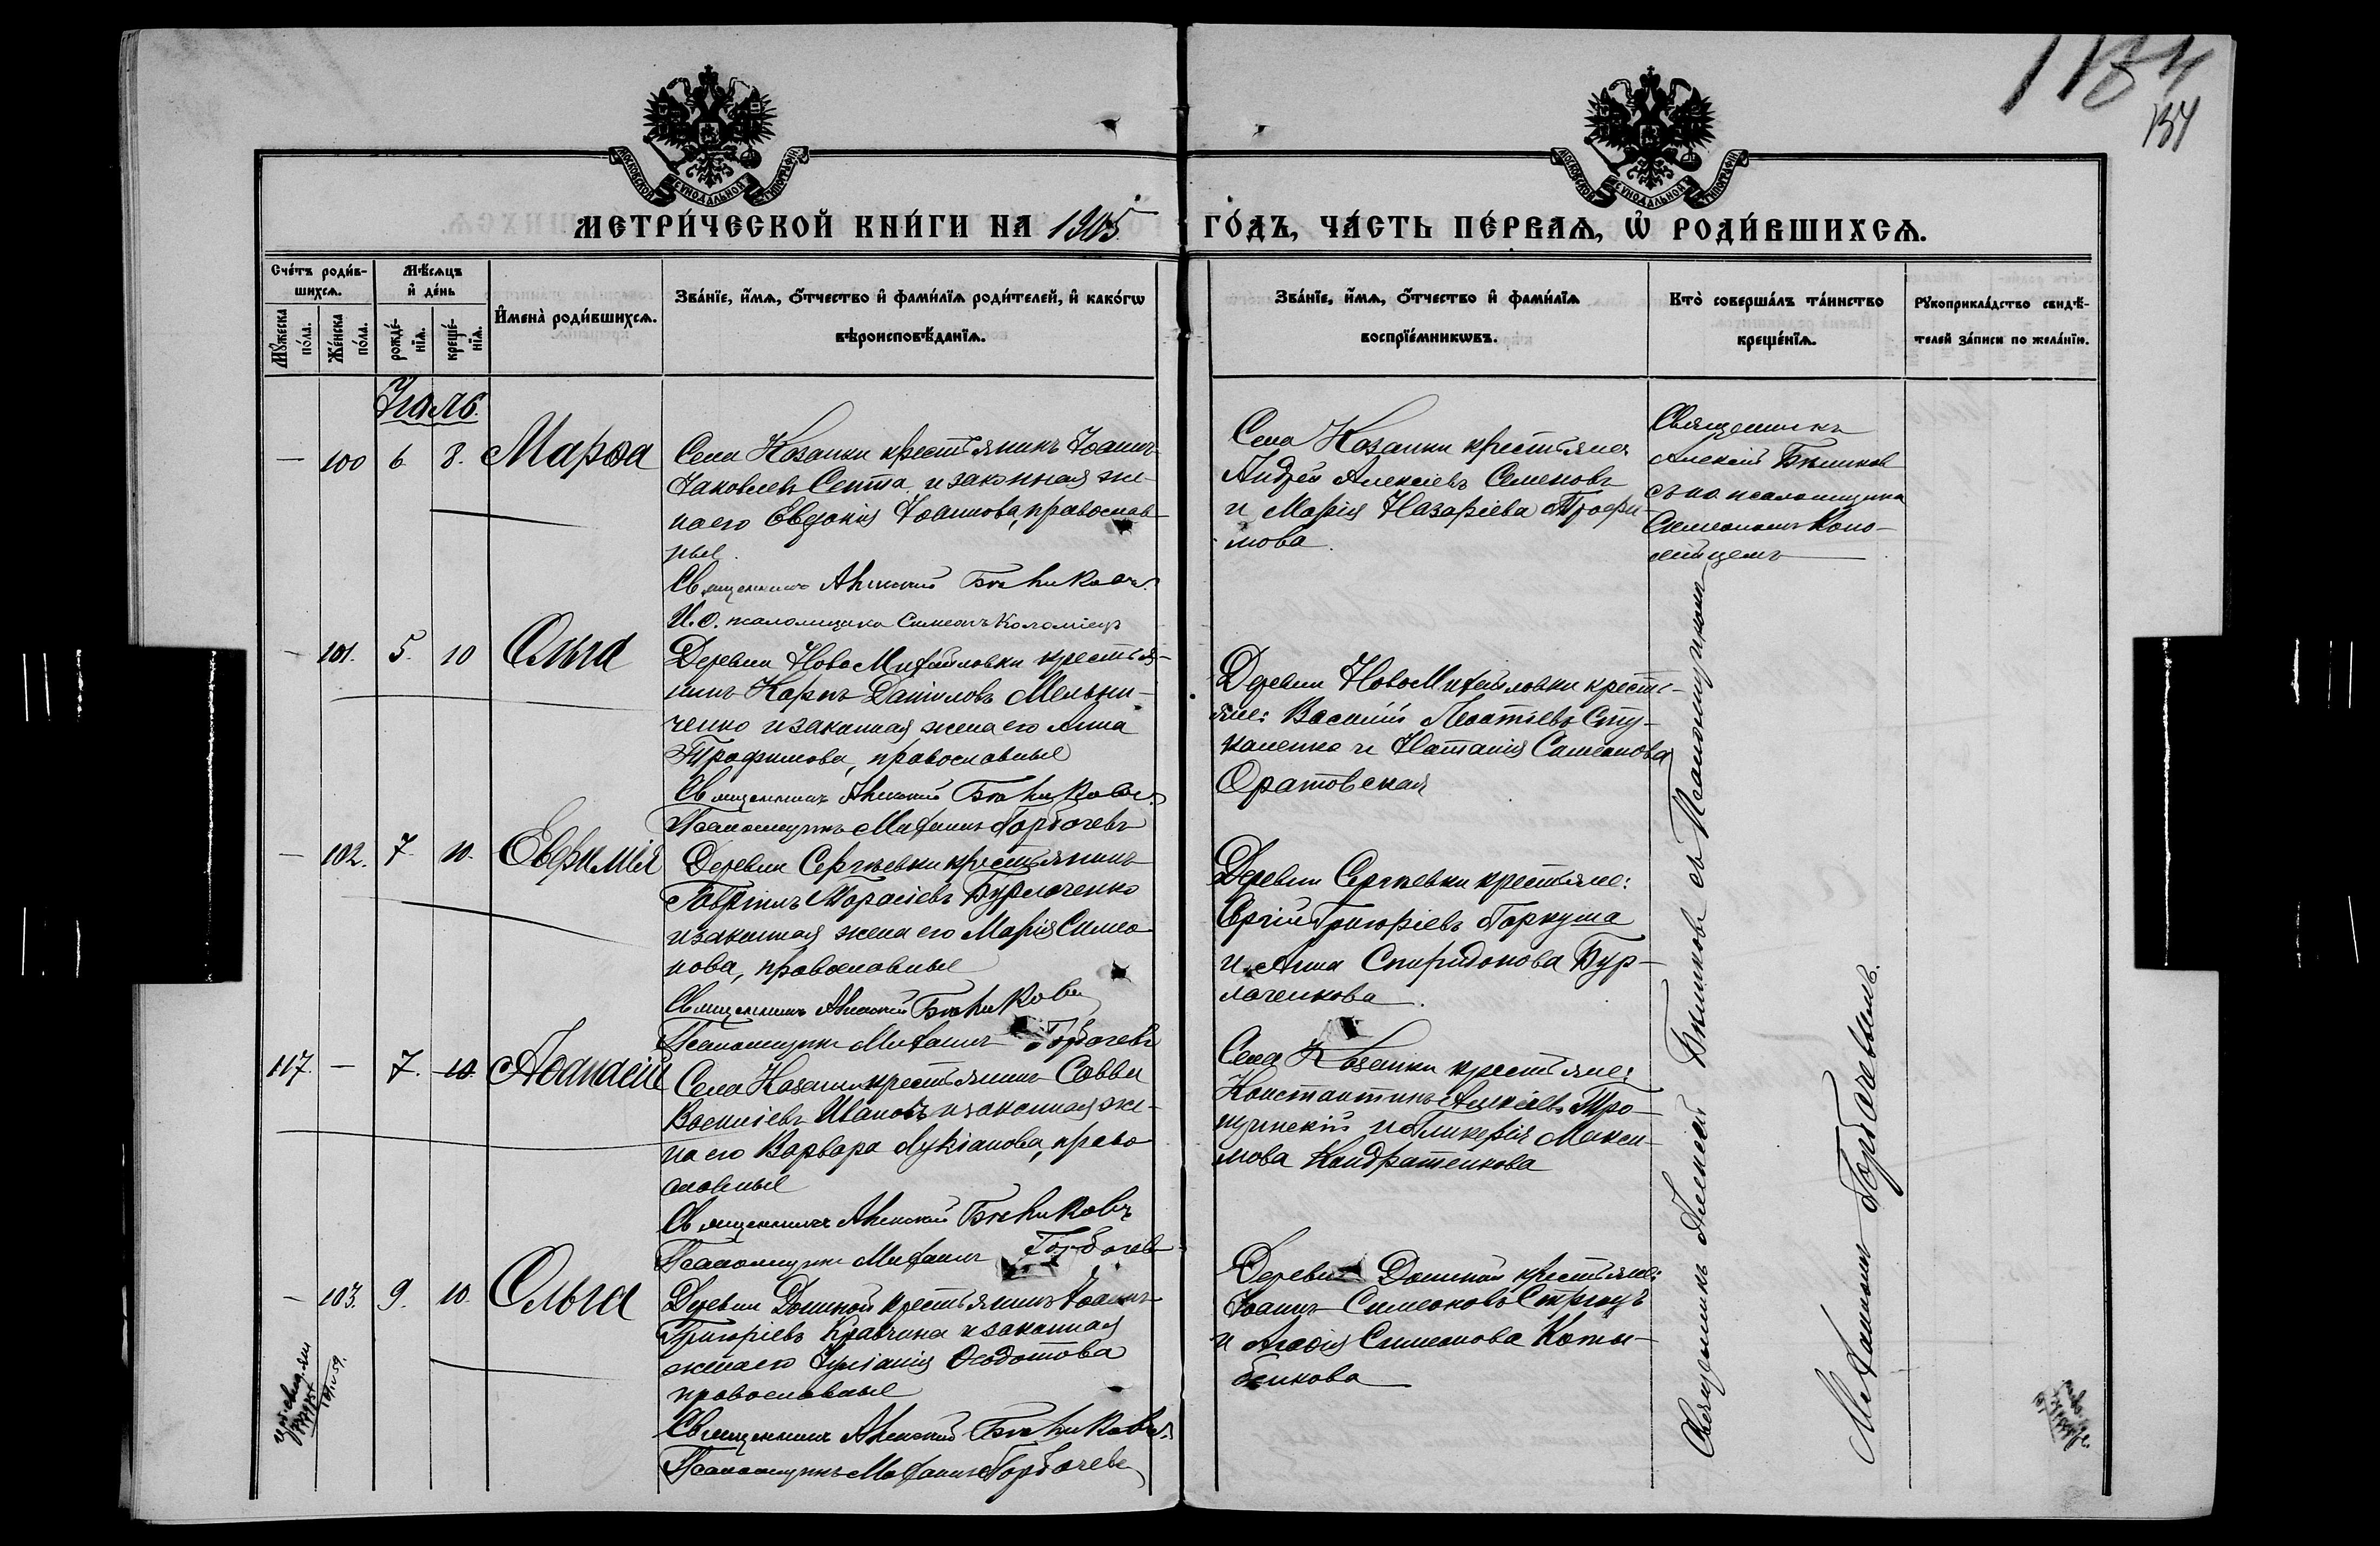 1134
134
МОСКОВСКОЙ СѴНОДАЛЬНОЙ ТИПОГРАФІИ
МОСКОВСКОЙ СѴНОДАЛЬНОЙ ТИПОГРАФІИ
МЕТРИ́ЧЕСКОЙ КНИ́ГИ НА 1905 ГО́ДЪ, ЧА́СТЬ ПЕ́РВАѦ, Ѽ РОДИ́ВШИХСѦ.
Сче́тъ роди́в-
шихсѧ.
Мѣ́сѧцъ
и҆ де́нь
Мꙋ́жеска по́ла.
Же́нска по́ла.
рожде́-
нїѧ.
креще́-
нїѧ.
И҆мена̀ роди́вшихсѧ.
Зва́нїе, и҆́мѧ, ѻ҆́тчество и҆ фами́лїѧ роди́телей, и҆ како́гѡ
вѣроисповѣ́данїѧ.
Зва́нїе, и҆́мѧ, ѻ҆́тчество и҆ фами́лїѧ
воспрїе́мникѡвъ.
Кто̀ соверша́лъ та́инство
креще́нїѧ.
Рꙋкоприкла́дство свидѣ́-
телей за́писи по жела́нїю.
Іюль.
— 100 6 8. Марѳа
Села Козанки крестьянинъ Іоаннъ
Іаковлевъ Септа и законная же-
на его Евдокія Іоаннова, православ-
ные.
Священникъ Алексій Бѣликовъ.
И. о. псаломщика Симеонъ Коломіецъ
Села Козанки крестьяне
Андрей Алексіевъ Семеновъ
и Марія Назаріева Трофи-
мова.
Священникъ
Алексій Бѣликовъ
съ и.о. псаломщика
Симеономъ Коло-
мійцемъ
— 101. 5. 10 Ольга
Деревни НовоМихайловки крестья-
нинъ Карпъ Даніиловъ Мельни-
ченко и законная жена его Анна
Трофимова, православные
Священникъ Алексій Бѣликовъ.
Псаломщикъ Митрофанъ Горбачевъ
Деревни НовоМихайловки кресть-
яне: Василій Леонтіевъ Сту-
каленко и Наталія Симеонова
Оратовская
— 102. 7. 10. Евфимія
Деревни Сергѣевки крестьянинъ
Гавріилъ Бурлаченко
и законная жена его Марія Симео-
нова, православные
Священникъ Алексій Бѣликовъ
Псаломщикъ Митрофанъ Горбачевъ
Деревни Сергѣевки крестьяне:
Сергій Григоріевъ Гаркуша
и Анна Спиридонова Бур-
лаченкова.
117. — 7. 10. Аѳанасій
Села Козанки крестьянинъ Савва
Василіевъ Ивановъ и законная же-
на его Варвара Лукіанова, право-
славные
Священникъ Алексій Бѣликовъ
Псаломщикъ Митрофанъ Горбачевъ
Села Козанки крестьяне:
Константинъ Алексіевъ Тро-
щинскій и Гликерія Макси-
мова Кондратенкова
— 103. 9. 10. Ольга
Деревни Долиной крестьянинъ Іоаннъ
Григоріевъ Кравчина и законная
жена его Іуліанія Ѳеодотова
православные
Священникъ Алексій Бѣликовъ.
Псаломщикъ Митрофанъ Горбачевъ
Деревни Долиной крестьяне:
Іоаннъ Симеоновъ Стрицъ
и Агаѳія Симеонова Коты-
бенкова
Священникъ Алексій Бѣликовъ съ Псаломщикомъ
Митрофаномъ Горбачевымъ.